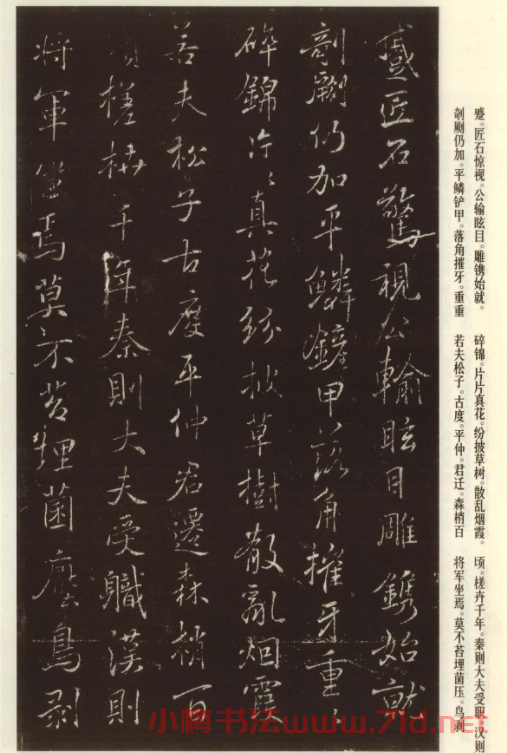 蹙。匠石惊视。公输眩目。雕镌始就。
剞劂仍加。平鳞铲甲。落角摧牙。重重
碎锦。片片真花。纷披草树。散乱烟霞。
若夫松子。古度。平仲。君迁。森梢百
顷。槎卉千年。秦则大夫受职。汉则
将军坐焉。莫不苔埋菌压。鸟剥
蹙匠石驚視公輸眩目雕鎸始就
剞劂仍加平鱗鏟甲落角摧牙重〻
碎錦片〻真花紛披草樹散亂烟霞
若夫松子古度平仲君遷森梢百
頃槎枿千年秦則大夫受職漢則
將軍坐焉莫不苔埋菌壓鳥剥
书法www.71d.net